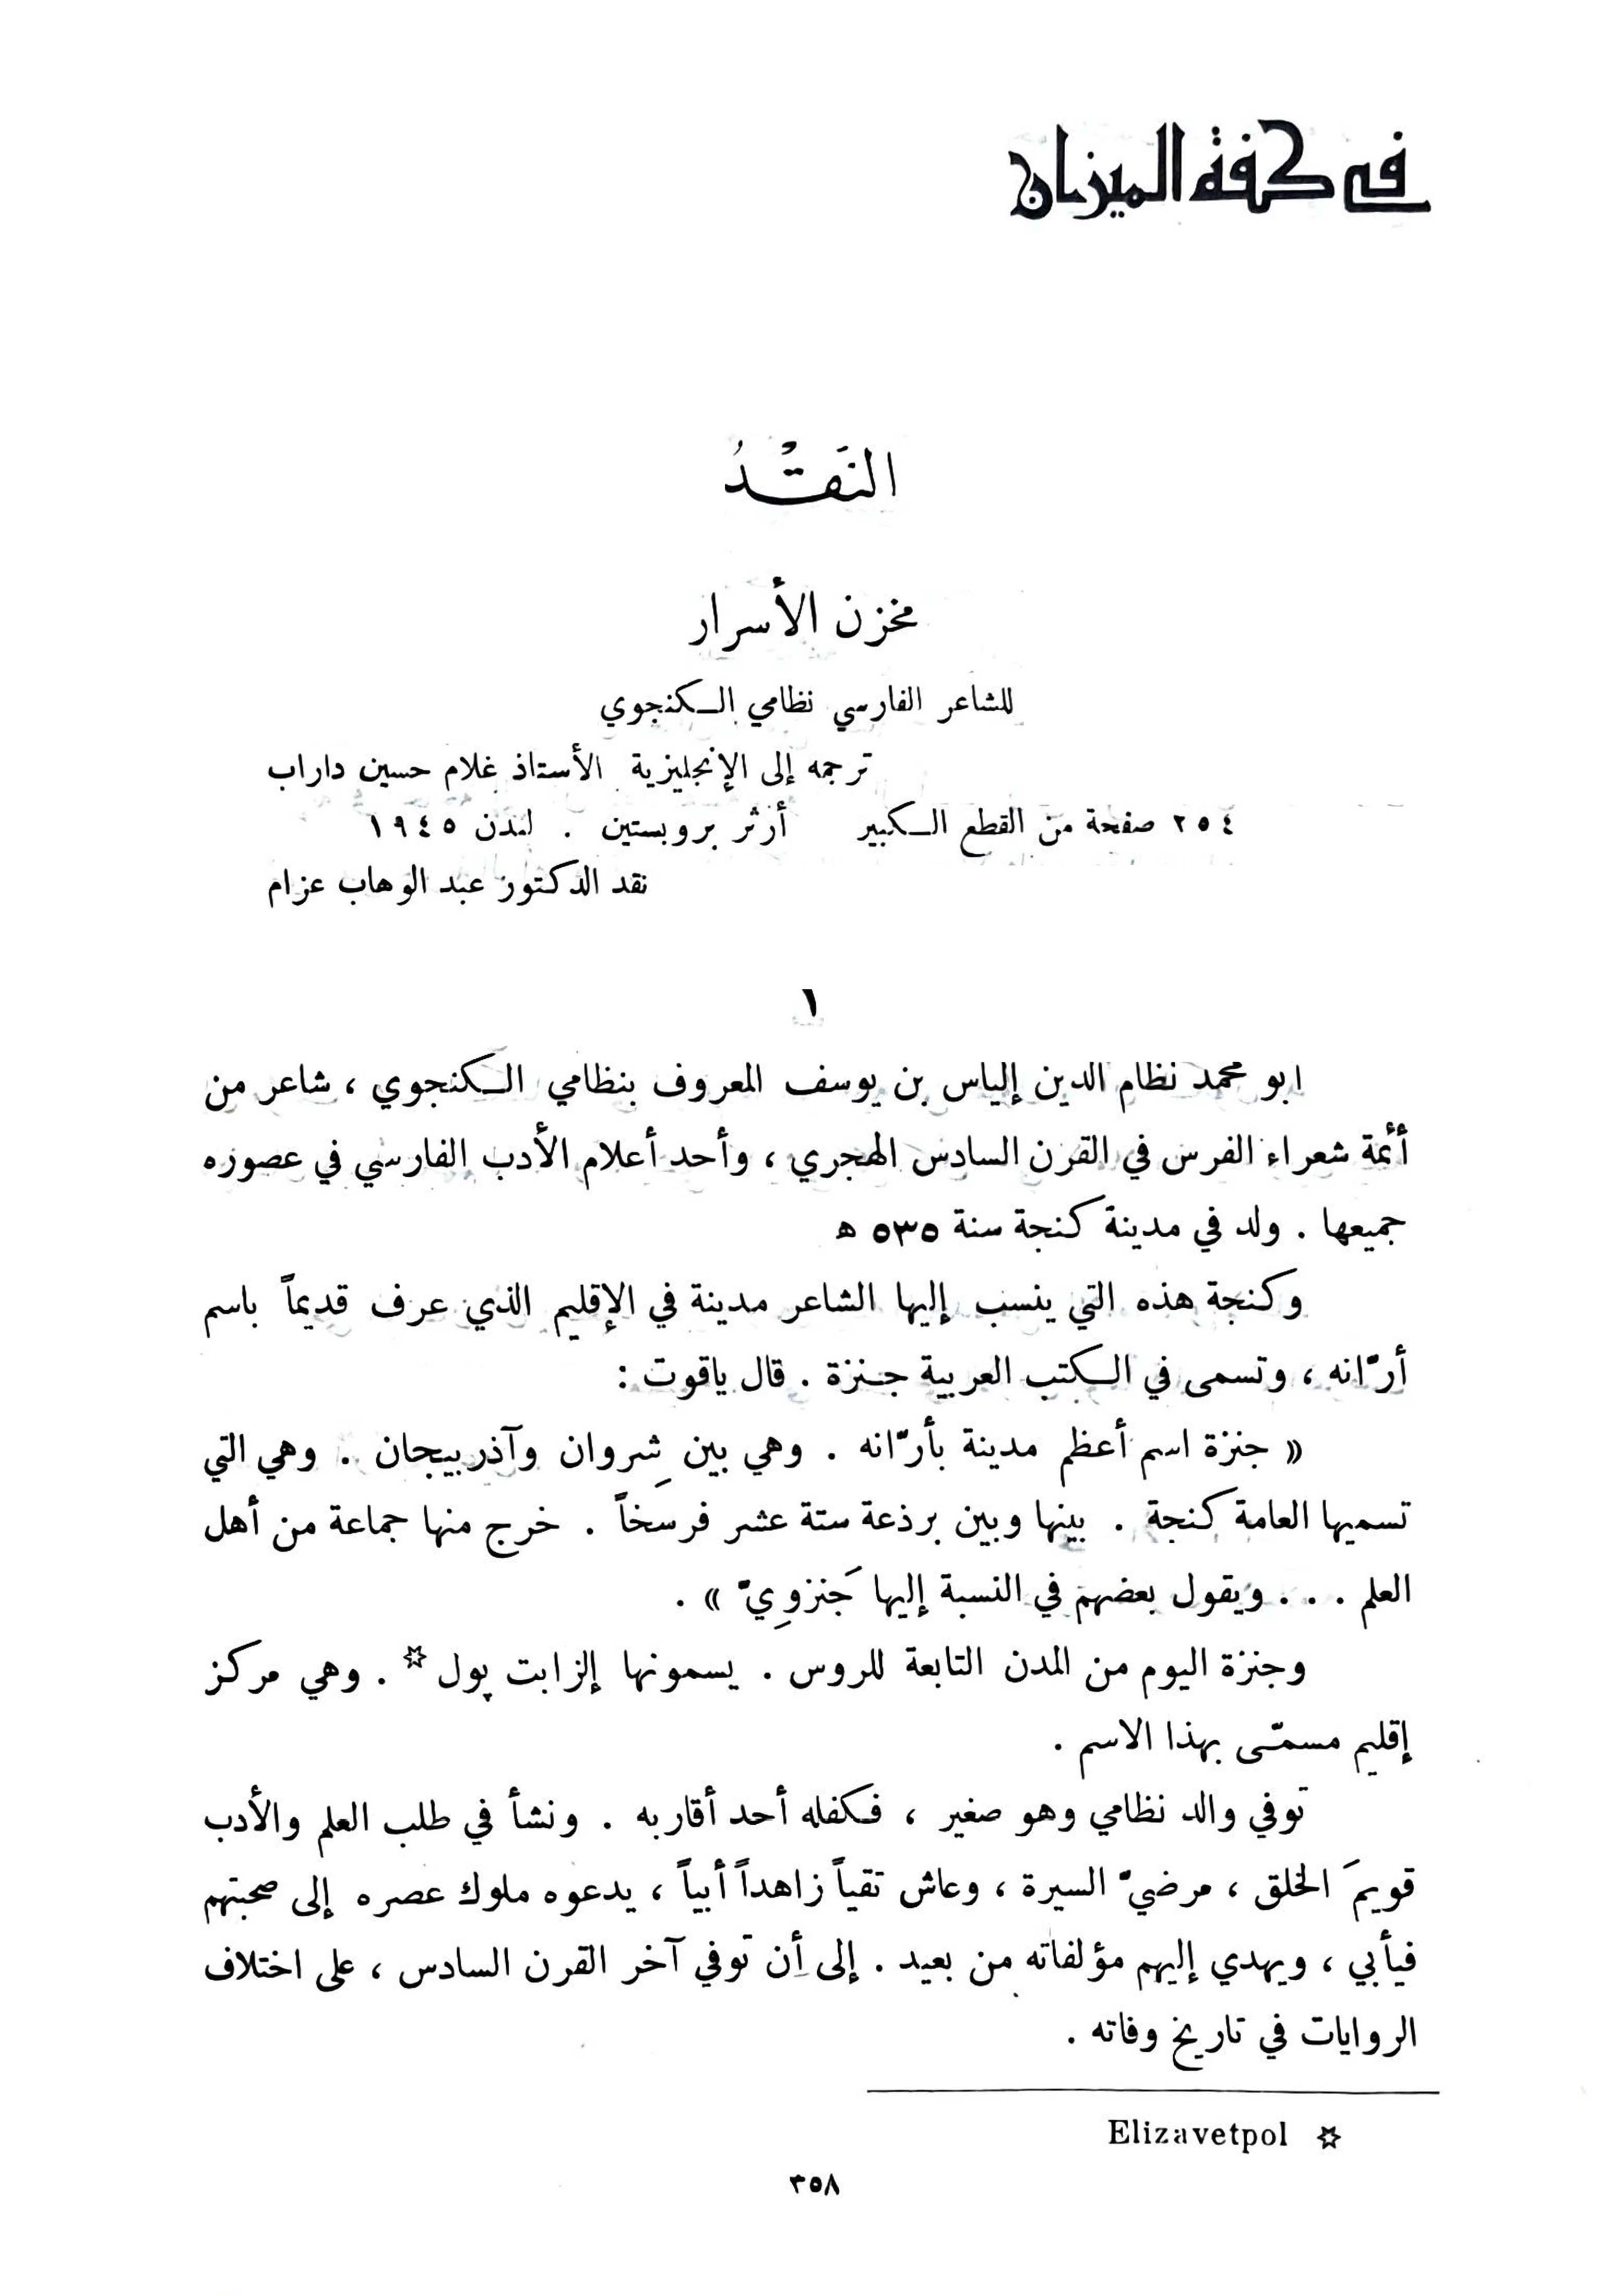 في كفة الميزان
النَقْدُ
مخزن الأسرار
للشاعر الفارسي نظامي الكنجوي
ترجمه إلى الإنجليزية الأستاذ غلام حسين داراب
٢٥٤ صفحة من القطع الكبير أرثر بروبستين . لندن ١٩٤٥
نقد الدكتور عبد الوهاب عزام
١
ابو محمد نظام الدين إلياس بن يوسف المعروف بنظامي الكنجوي ، شاعر من
أئمة شعراء الفرس في القرن السادس الهجري ، وأحد أعلام الأدب الفارسي في عصوره
جميعها . ولد في مدينة كنجة سنة ٥٣٥ ه
وكنجة هذه التي ينسب إليها الشاعر مدينة في الإقليم الذي عرف قديماً باسم
أرّانه ، وتسمى في الكتب العربية جنزة . قال ياقوت :
« جنزة اسم أعظم مدينة بأرّانه . وهي بين شِروان وآذربيجان . وهي التي
تسميها العامة كنجة . بينها وبين برذعة ستة عشر فرسخاً . خرج منها جماعة من أهل
العلم . . . ويقول بعضهم في النسبة إليها جَنزوِيّ » .
وجنزة اليوم من المدن التابعة للروس . يسمونها إلزابت پول * . وهي مركز
إقليم مسمّى بهذا الاسم .
توفي والد نظامي وهو صغير ، فكفله أحد أقاربه . ونشأ في طلب العلم والأدب
قويمَ الخلق ، مرضيّ السيرة ، وعاش تقياً زاهداً أبياً ، يدعوه ملوك عصره إلى صحبتهم
فيأبي ، ويهدي إليهم مؤلفاته من بعيد . إلى أن توفي آخر القرن السادس ، على اختلاف
الروايات في تاريخ وفاته .
* Elizavetpol
٣٥٨